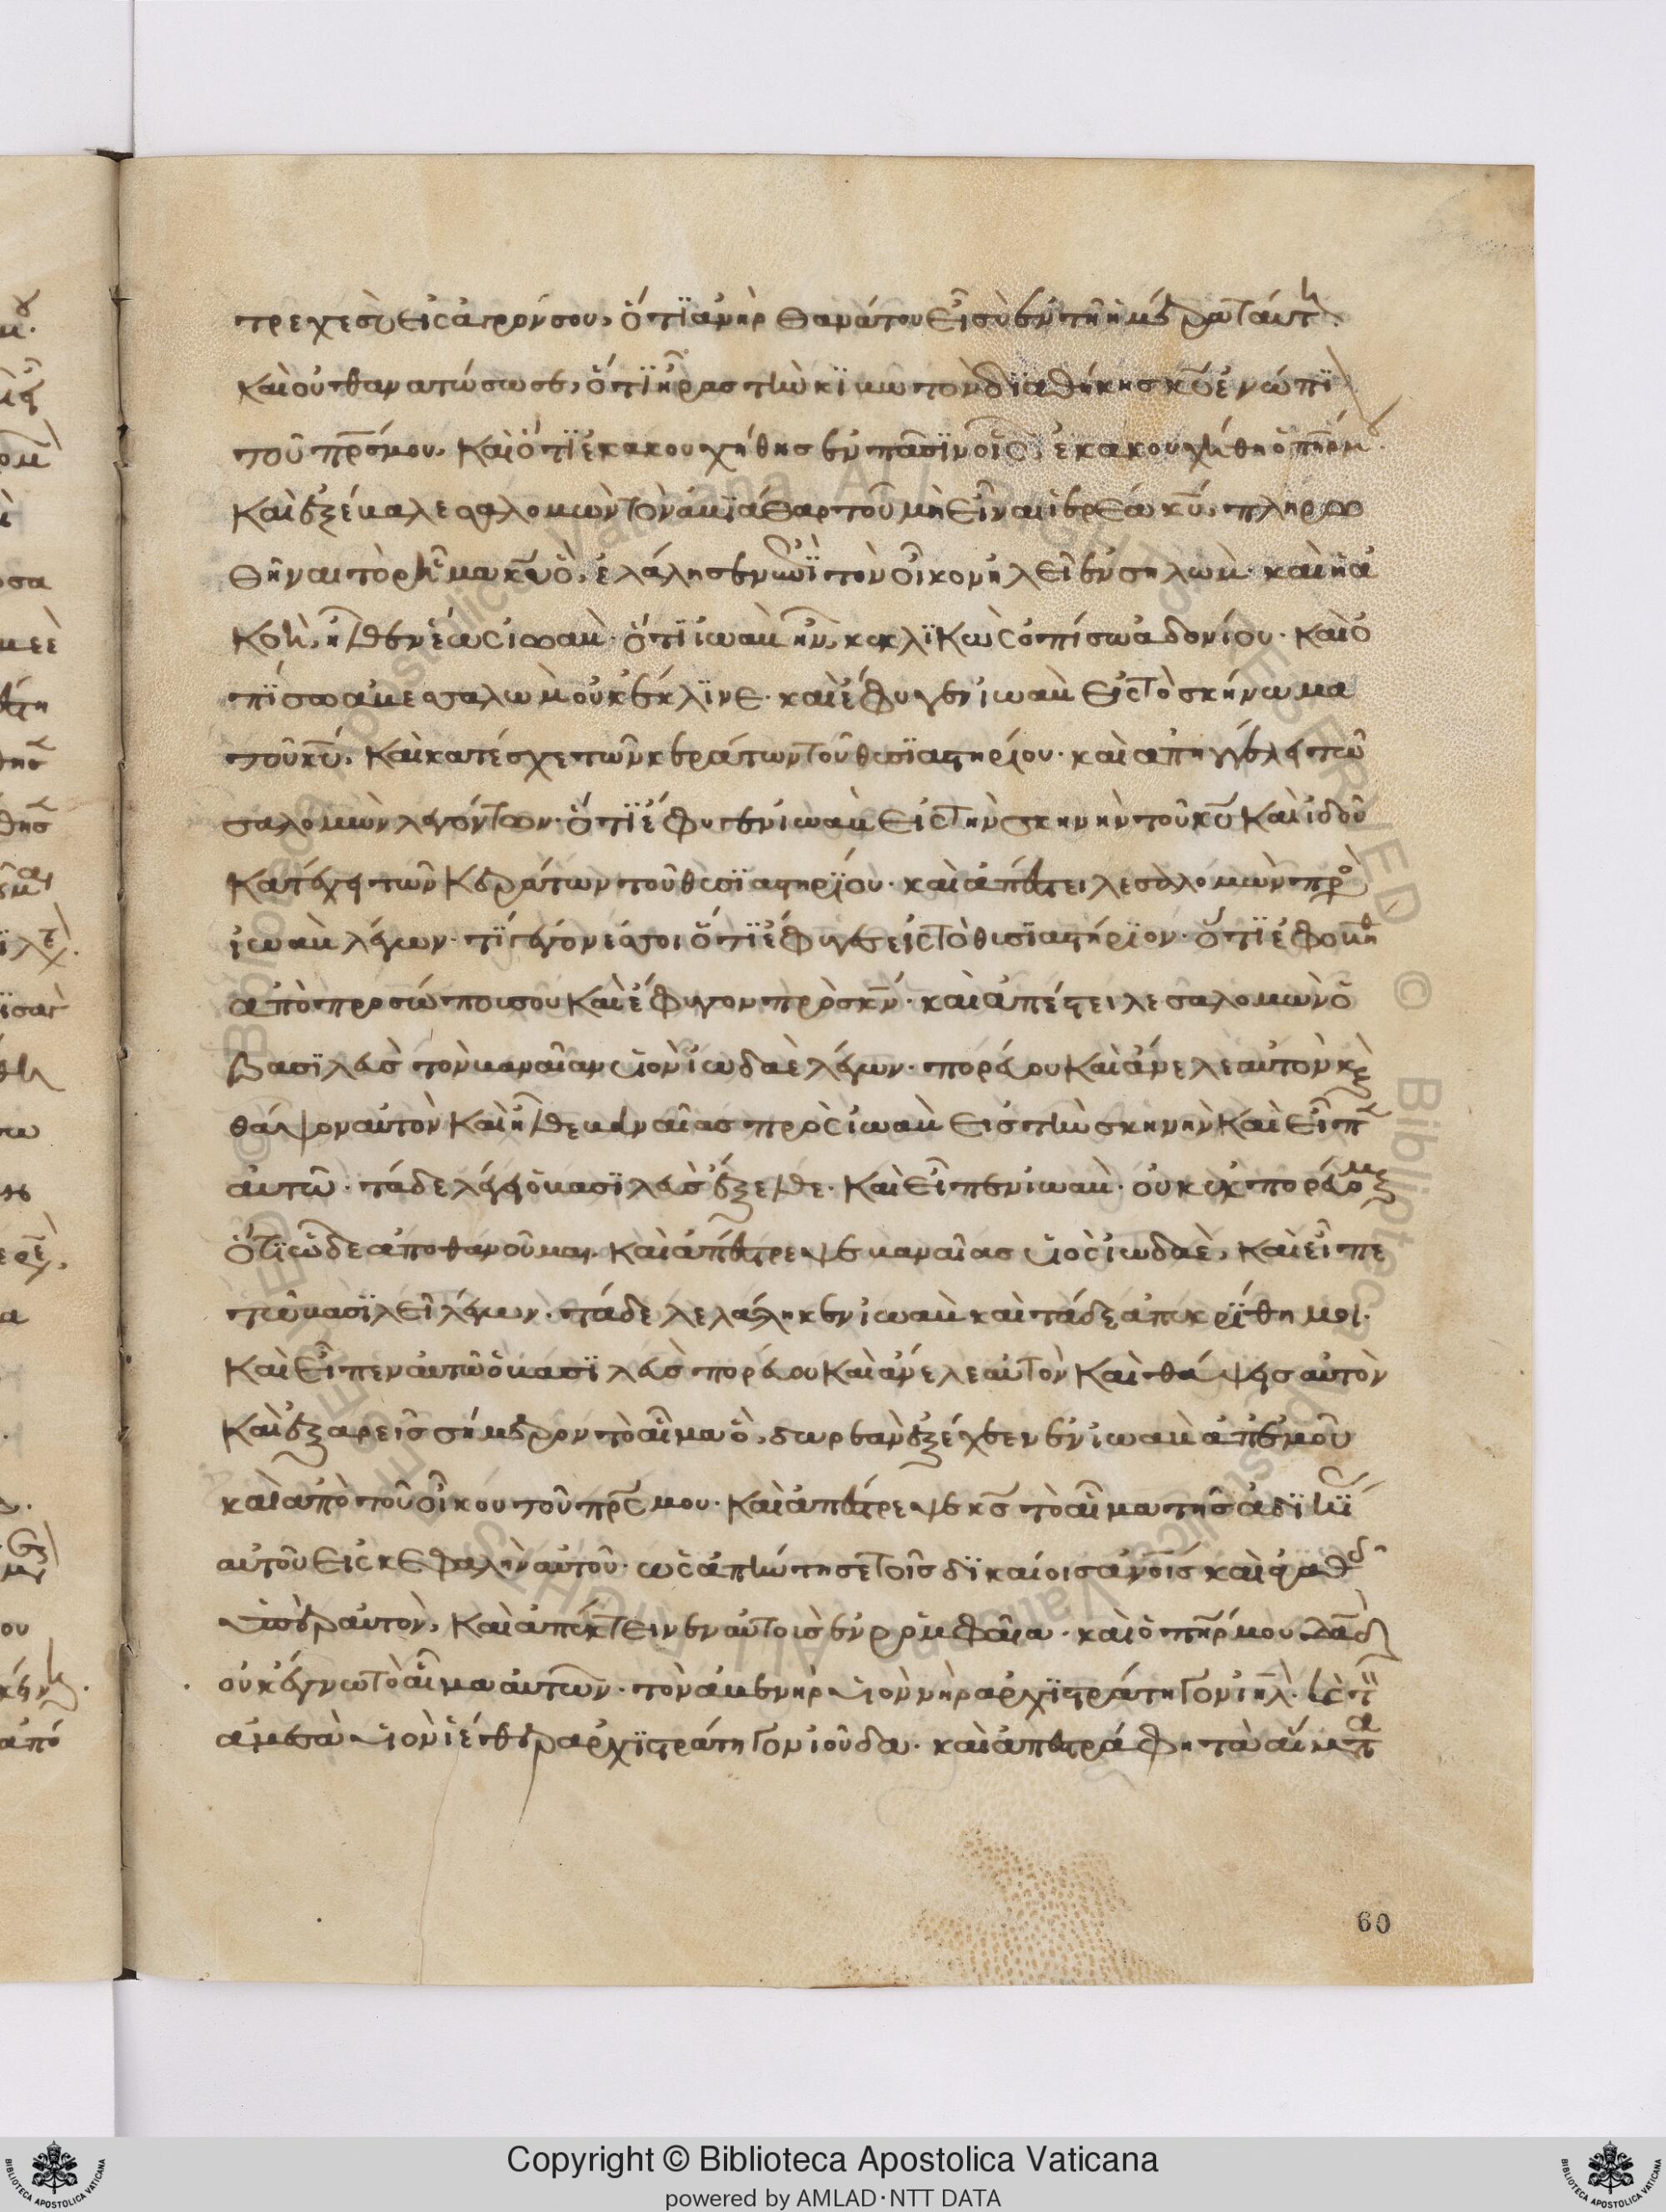 τρεχε σὺ εἰς ἀγρόν σου, ὅτϊ ἀνὴρ θανάτου εἶ σὺ ἐν τῆ ἡμέρα ταύτη.
καὶ οὐ θανατώσω σε, ὅτϊ ἦρας τὴν κϊβωτὸν διαθήκης κυ ἐνώπϊ
τοῦ πρσ μου, καὶ ὅτϊ ἐκακουχήθης ἐν πᾶσϊν οἷς ἐκακουχήθη ὁ πηρ μου.
καὶ ἐξέβαλε σαλομὼν τὸν ἀβϊάθαρ τοῦ μὴ εἶναι ἱερέα κυ, πληρω
θῆναι τὸ ρῆμα κυ ὃ, ἐλάλησεν ἐπὶ τὸν οἶκον ἠλεὶ ἐν σηλὼμ. καὶ ἡ ἀ
κοὴ, ἦλθεν ἕως ἰωαβ. ὅτϊ ἰωαβ ἦν, κεκλϊκὼς ὀπίσω ἀδονίου. καὶ ὀ
πϊσω ἀβεσαλὼμ οὐκ ἔκλϊνε. καὶ ἔφυγεν ἰωαβ εἰς τὸ σκήνωμα
τοῦ κυ, καὶ κατέσχε τῶν κεράτων τοῦ θυσϊαστηρίου. καὶ ἀπηγγέλη τῶ
σαλομὼν λεγόντων. ὅτϊ ἔφυγεν ἰωαβ εἰς τὴν σκηνὴν τοῦ κυ καὶ ἰδοῦ
κατέχει τῶν κεράτων τοῦ θυσϊαστηρϊου. καὶ ἀπέστειλε σαλομὼν πρὸ
ἰωαβ λέγων. τϊ γέγονέ σοι ὅτϊ ἔφυγες εἰς τὸ θυσϊαστήρϊον. ὅτϊ ἐφοβήθη
ἀπὸ προσώπου σου καὶ ἔφυγον πρὸς κν. καὶ ἀπέστειλε σαλομὼν ὁ
βασϊλεὺς τὸν βαναίαν υἱὸν ἰωδαὲ λέγων. πορεύου καὶ ἄνελε αὐτὸν κὲ
θάψον αὐτὸν καὶ ἦλθε βαναίας πρὸς ἰωαβ εἰς τὴν σκηνὴν καὶ εἶπε
αὐτῶ. τάδε λέγει ὁ βασϊλεὺς ἔξελθε. καὶ εἶπεν ἰωαβ. οὐκ ἐκπορεύομαι
ὅτϊ ὧδε ἀποθανοῦμαι. καὶ ἀπέστρεψε βαναίας υἱὸς ἰωδαὲ, καὶ εἶπε
τῶ βασϊλεῖ λέγων. τάδε λελάληκεν ἰωαβ καὶ τάδε ἀπεκρϊθη μοι.
καὶ εἶπεν αὐτῶ ὁ βασϊλεὺς πορεύου καὶ ἄνελε αὐτὸν καὶ θάψεις αὐτὸν
καὶ ἐξαρεῖς σήμερον τὸ αἷμα ὃ, δωρεὰν ἐξέχεεν ἰωαβ ἀπ᾽ ἐμοῦ
καὶ ἀπὸ τοῦ οἴκου τοῦ πρς μου. καὶ ἀπέστρεψε κς τὸ αἷμα τῆς ἀδϊκί
αὐτοῦ εἰς κεφαλὴν αὐτοῦ. ὡς ἀπήντησε τοῖς δϊκαίοις ἀνοις καὶ ἀγαθοῖ
ὑπὲρ αὐτὸν, καὶ ἀπέκτεινεν αὐτοὺς ἐν ρομφαία. καὶ ὁ πηρ μου δαδ
οὐκ ἔγνω τὸ αἷμα αὐτῶν. τὸν ἀβενὴρ υἱὸν νὴρ ἀρχϊστράτηγον ιηλ. καὶ τὸν
ἀμεσὰ υἱὸν ἰέθερ ἀρχϊστράτηγον ἰούδα. καὶ ἀπεστράφη τὰ αἵματα
60
Copyright © Biblioteca Apostolica Vaticana
powered by AMLAD·NTT DATA